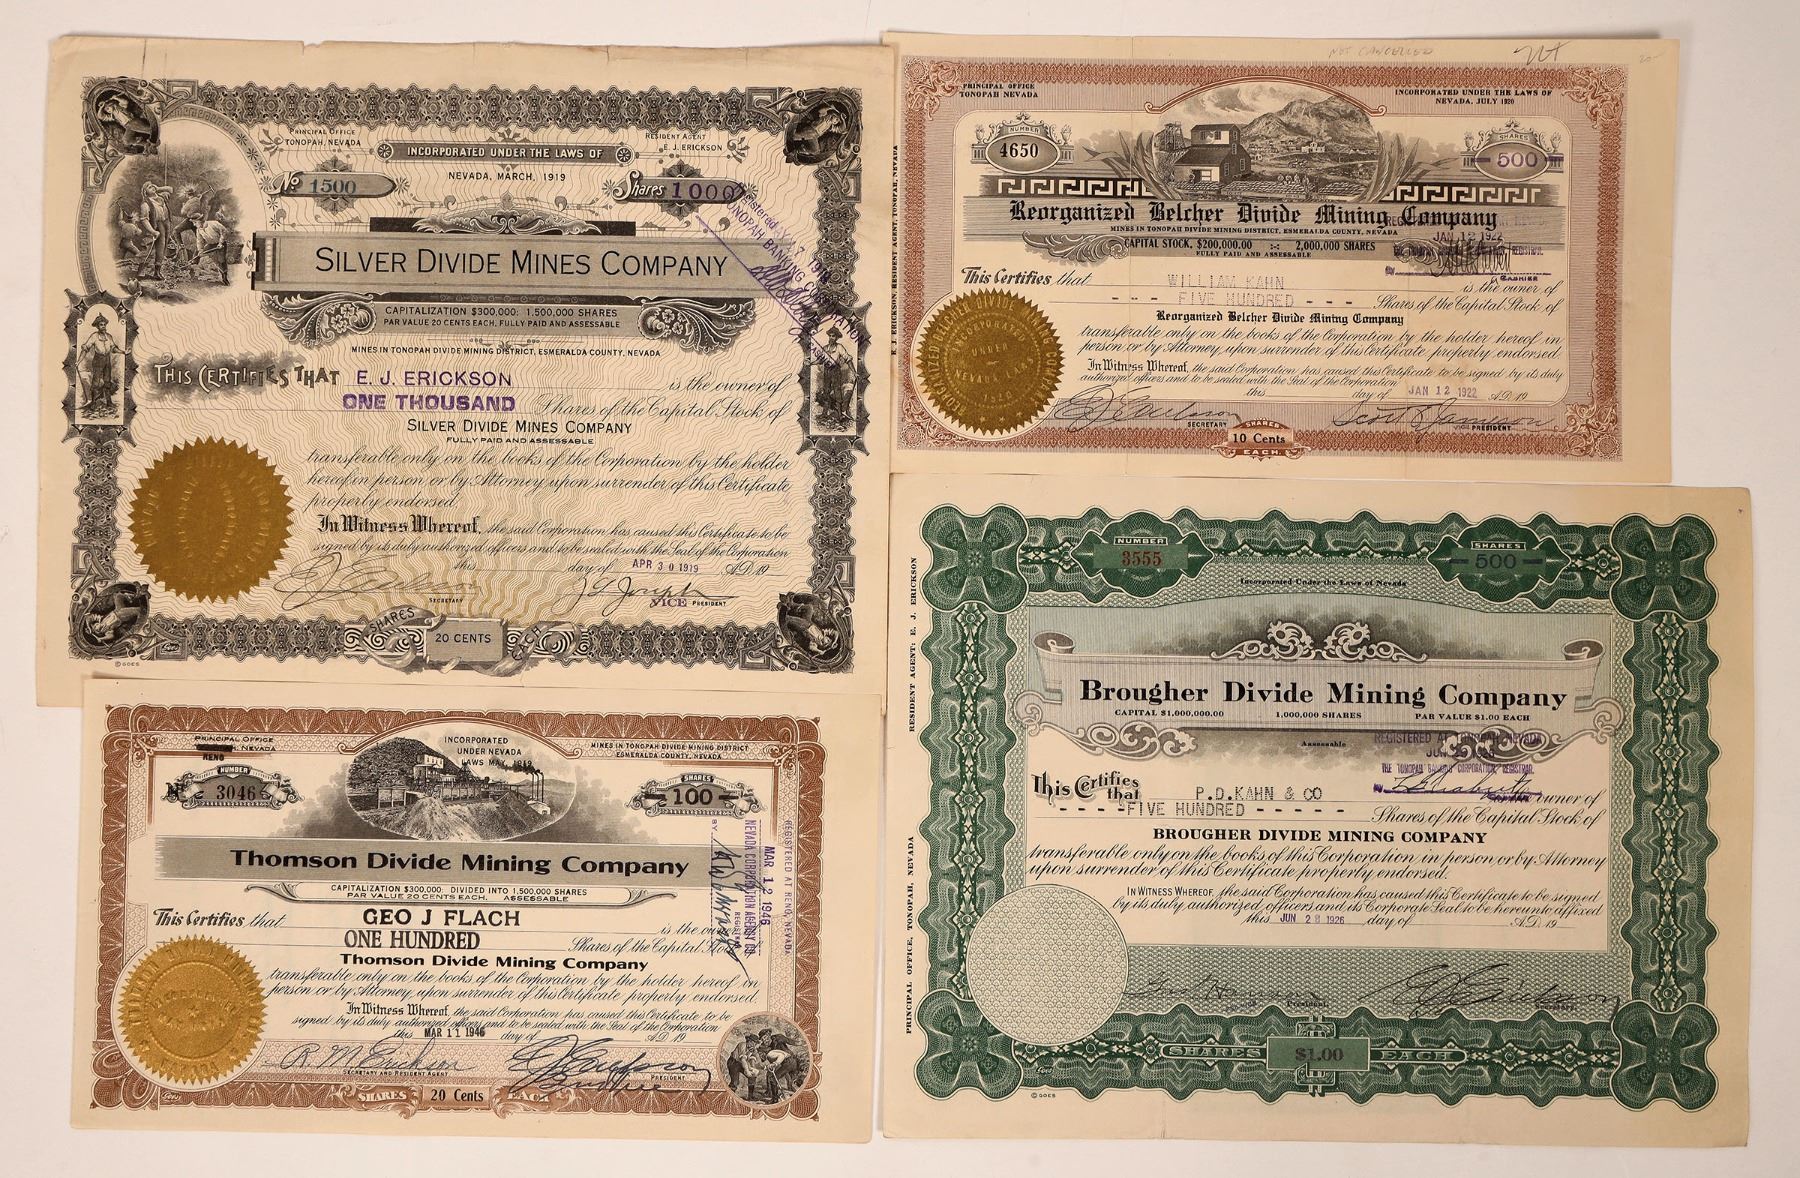 PRINCIPAL OFFICE
TONOPAH, NEVADA
INCORPORATED UNDER THE LAWS OF
NEVADA, MARCH, 1919
RESIDENT AGENT
E. J. ERICKSON
No 1500
Shares 1000
SILVER DIVIDE MINES COMPANY
CAPITALIZATION $300,000: 1,500,000 SHARES
PAR VALUE 20 CENTS EACH, FULLY PAID AND ASSESSABLE
MINES IN TONOPAH DIVIDE MINING DISTRICT, ESMERALDA COUNTY, NEVADA
TONOPAH BANKING CORPORATION
THIS CERTIFIES THAT E. J. ERICKSON is the owner of
ONE THOUSAND Shares of the Capital Stock of
SILVER DIVIDE MINES COMPANY
FULLY PAID AND ASSESSABLE
transferable only on the books of the Corporation by the holder
hereof in person or by Attorney upon surrender of this Certificate
properly endorsed.
In Witness Whereof, the said Corporation has caused this Certificate to be
signed by its duly authorized officers and to be sealed with the Seal of the Corporation
this day of APR 30 1919 A.D. 19
SECRETARY
VICE PRESIDENT
SHARES 20 CENTS EACH
Goes
© GOES
NOT CANCELLED
20-
PRINCIPAL OFFICE
TONOPAH NEVADA
INCORPORATED UNDER THE LAWS OF
NEVADA, JULY 1920
NUMBER
4650
SHARES
500
Reorganized Belcher Divide Mining Company
MINES IN TONOPAH DIVIDE MINING DISTRICT, ESMERALDA COUNTY, NEVADA
CAPITAL STOCK, $200,000.00 2,000,000 SHARES
FULLY PAID AND ASSESSABLE
JAN 12 1922
REGISTRAR
CASHIER
This Certifies that WILLIAM KAHN is the owner of
--- FIVE HUNDRED --- Shares of the Capital Stock of
Reorganized Belcher Divide Mining Company
transferable only on the books of the Corporation by the holder hereof in
person or by Attorney upon surrender of this Certificate properly endorsed.
In Witness Whereof, the said Corporation has caused this Certificate to be signed by its duly
authorized officers and to be sealed with the Seal of the Corporation
this day of JAN 12 1922 A.D. 19
SECRETARY
VICE PRESIDENT
SHARES
10 Cents
EACH
E. J. ERICKSON, RESIDENT AGENT, TONOPAH, NEVADA
INCORPORATED
UNDER
NEVADA LAWS
1920
PRINCIPAL OFFICE
NEVADA
RENO
INCORPORATED
UNDER NEVADA
LAWS MAY, 1919
MINES IN TONOPAH DIVIDE MINING DISTRICT
ESMERALDA COUNTY, NEVADA
NUMBER
No 3046
SHARES
100
Thomson Divide Mining Company
CAPITALIZATION $300,000: DIVIDED INTO 1,500,000 SHARES
PAR VALUE 20 CENTS EACH. ASSESSABLE
REGISTERED AT RENO, NEVADA
MAR 12 1946
NEVADA CORPORATION AGENCY CO.
REGISTRAR
BY
This Certifies that GEO J FLACH is the owner of
ONE HUNDRED Shares of the Capital Stock
Thomson Divide Mining Company
transferable only on the books of the Corporation by the holder hereof in
person or by Attorney upon surrender of this Certificate properly endorsed.
In Witness Whereof, the said Corporation has caused this Certificate to be
signed by its duly authorized officers and to be sealed with the Seal of the Corporation
this MAR 11 1946 day of A.D. 19
SECRETARY AND RESIDENT AGENT
PRESIDENT
SHARES 20 Cents EACH
Goes
NUMBER
3555
SHARES
500
Incorporated Under the Laws of Nevada
Brougher Divide Mining Company
CAPITAL $1,000,000.00 1,000,000 SHARES PAR VALUE $1.00 EACH
Assessable
REGISTERED AT TONOPAH, NEVADA
THE TONOPAH BANKING CORPORATION, REGISTRAR.
This Certifies that P.D.KAHN & CO owner of
FIVE HUNDRED Shares of the Capital Stock of
BROUGHER DIVIDE MINING COMPANY
transferable only on the books of this Corporation in person or by Attorney
upon surrender of this Certificate properly endorsed.
IN WITNESS WHEREOF, the said Corporation has caused this Certificate to be signed
by its duly authorized officers and its Corporate Seal to be hereunto affixed
this JUN 28 1926 day of A.D. 19
President,
SHARES $1.00 EACH
Goes
© GOES
RESIDENT AGENT: E. J. ERICKSON
PRINCIPAL OFFICE, TONOPAH, NEVADA